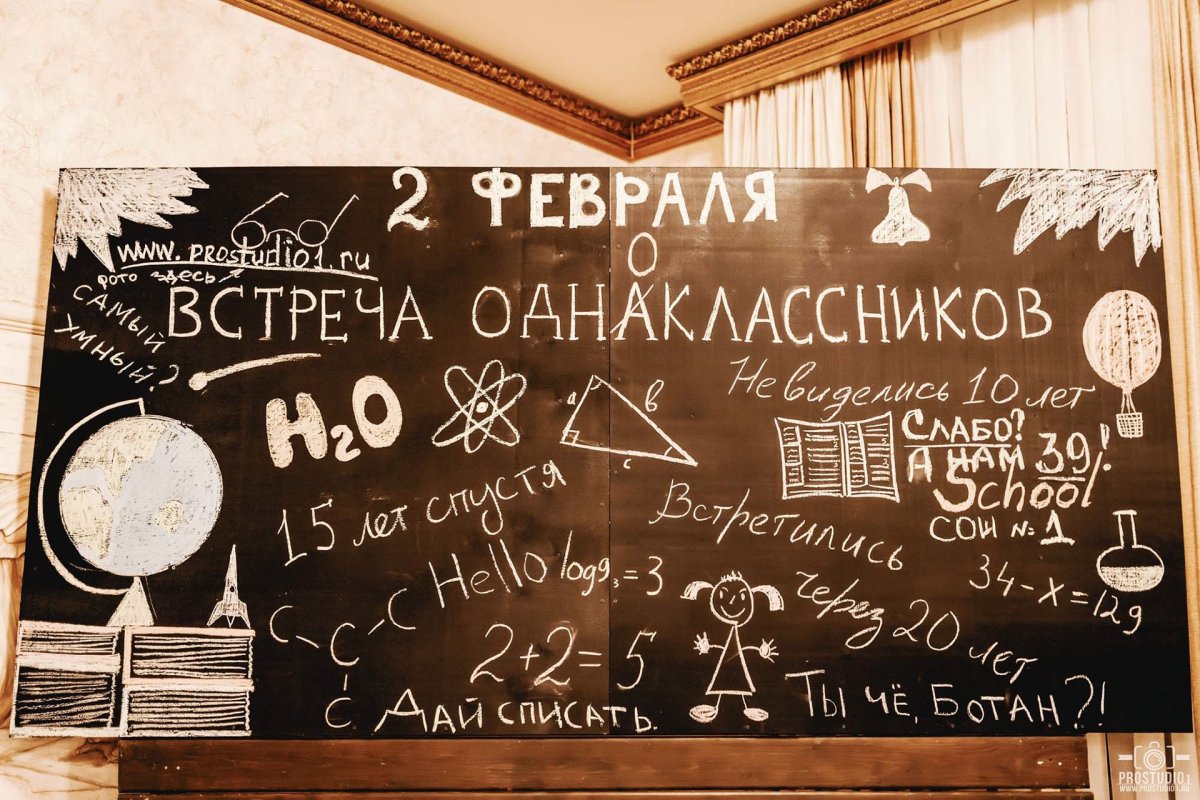 2 ФЕВРАЛЯ
www.prostudio1.ru
фото здесь
САМЫЙ
УМНЫЙ?
О
ВСТРЕЧА ОДНАКЛАССНИКОВ
Не виделись 10 лет
H2O
a
b
c
СЛАБО?
А НАМ 39!
School
СОШ №1
15 лет спустя
Встретились
через 20
лет
Hello
log9 3 = 3
34-x=129
C
C
C
C
2+2=5
ДАЙ СПИСАТЬ.
ТЫ ЧЁ, БОТАН?!
PROSTUDIO1
WWW.PROSTUDIO1.RU